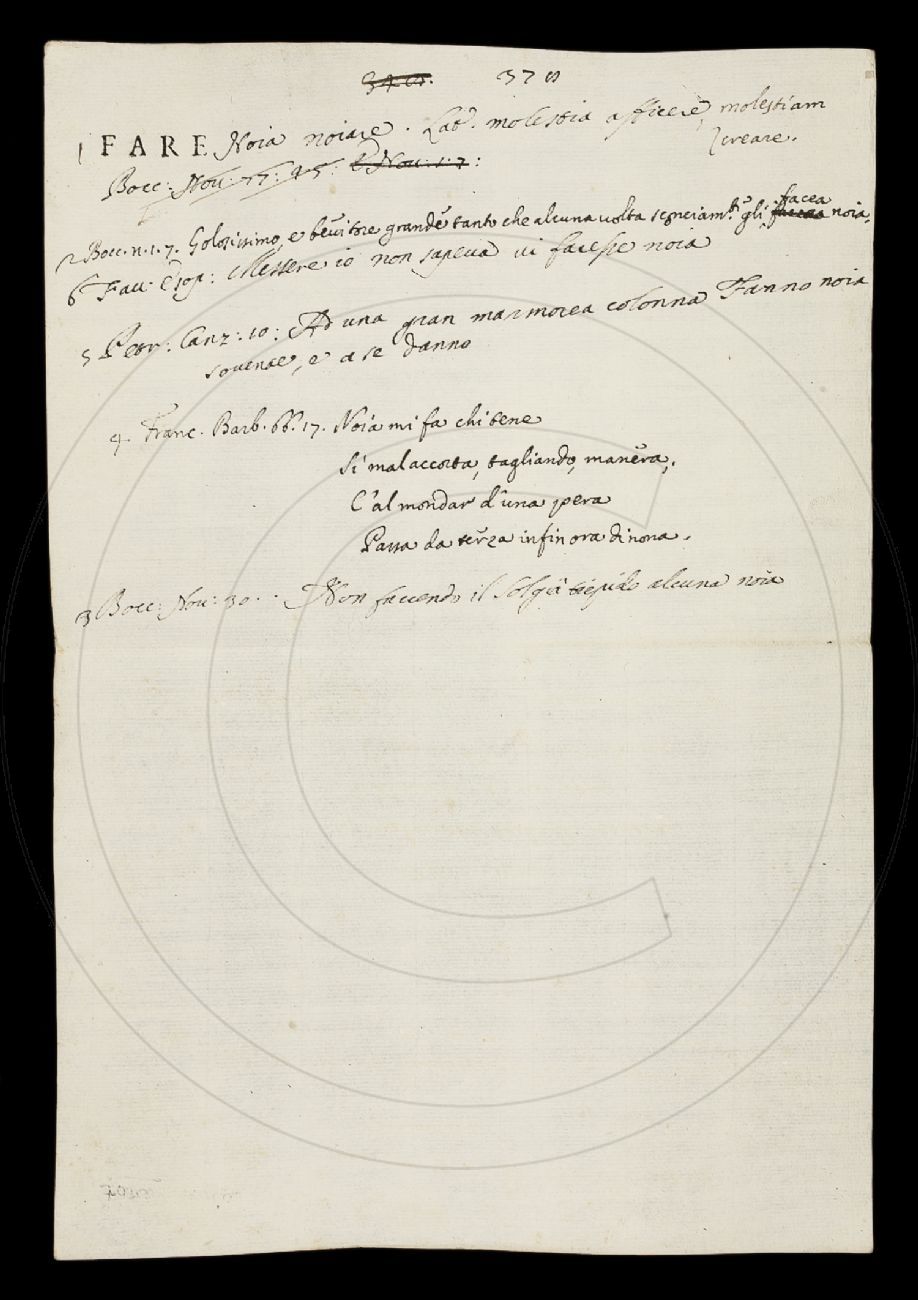 378
1 FARE Noia noiare. Lat. molestia afficere, molestiam
creare.
Bocc: Nov: 77: 25: e Nov: 1:7:
2 Bocc. n. 1. 7. Golosissimo, e bevitore grande tanto che alcuna volta sconciam.te gli facea noia.
6 Fav: Esop: Messere io non sapeva vi facesse noia
5 Petr: Canz: 10: Ad una gran marmorea colonna Fanno noia
sovente, e a se danno
4. Franc. Barb. 66. 17. Noia mi fa chi tene
Sì mal accorta, tagliando, manera,
C'al mondar d'una pera
Passa da terza infin ora di nona.
3 Bocc: Nov: 30.. Non facendo il Sol già tiepido alcuna noia